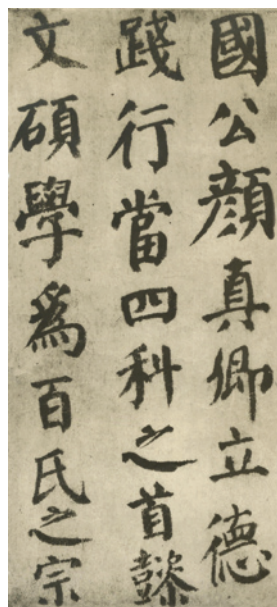 國公顏真卿立德
踐行當四科之首懿
文碩學為百氏之宗